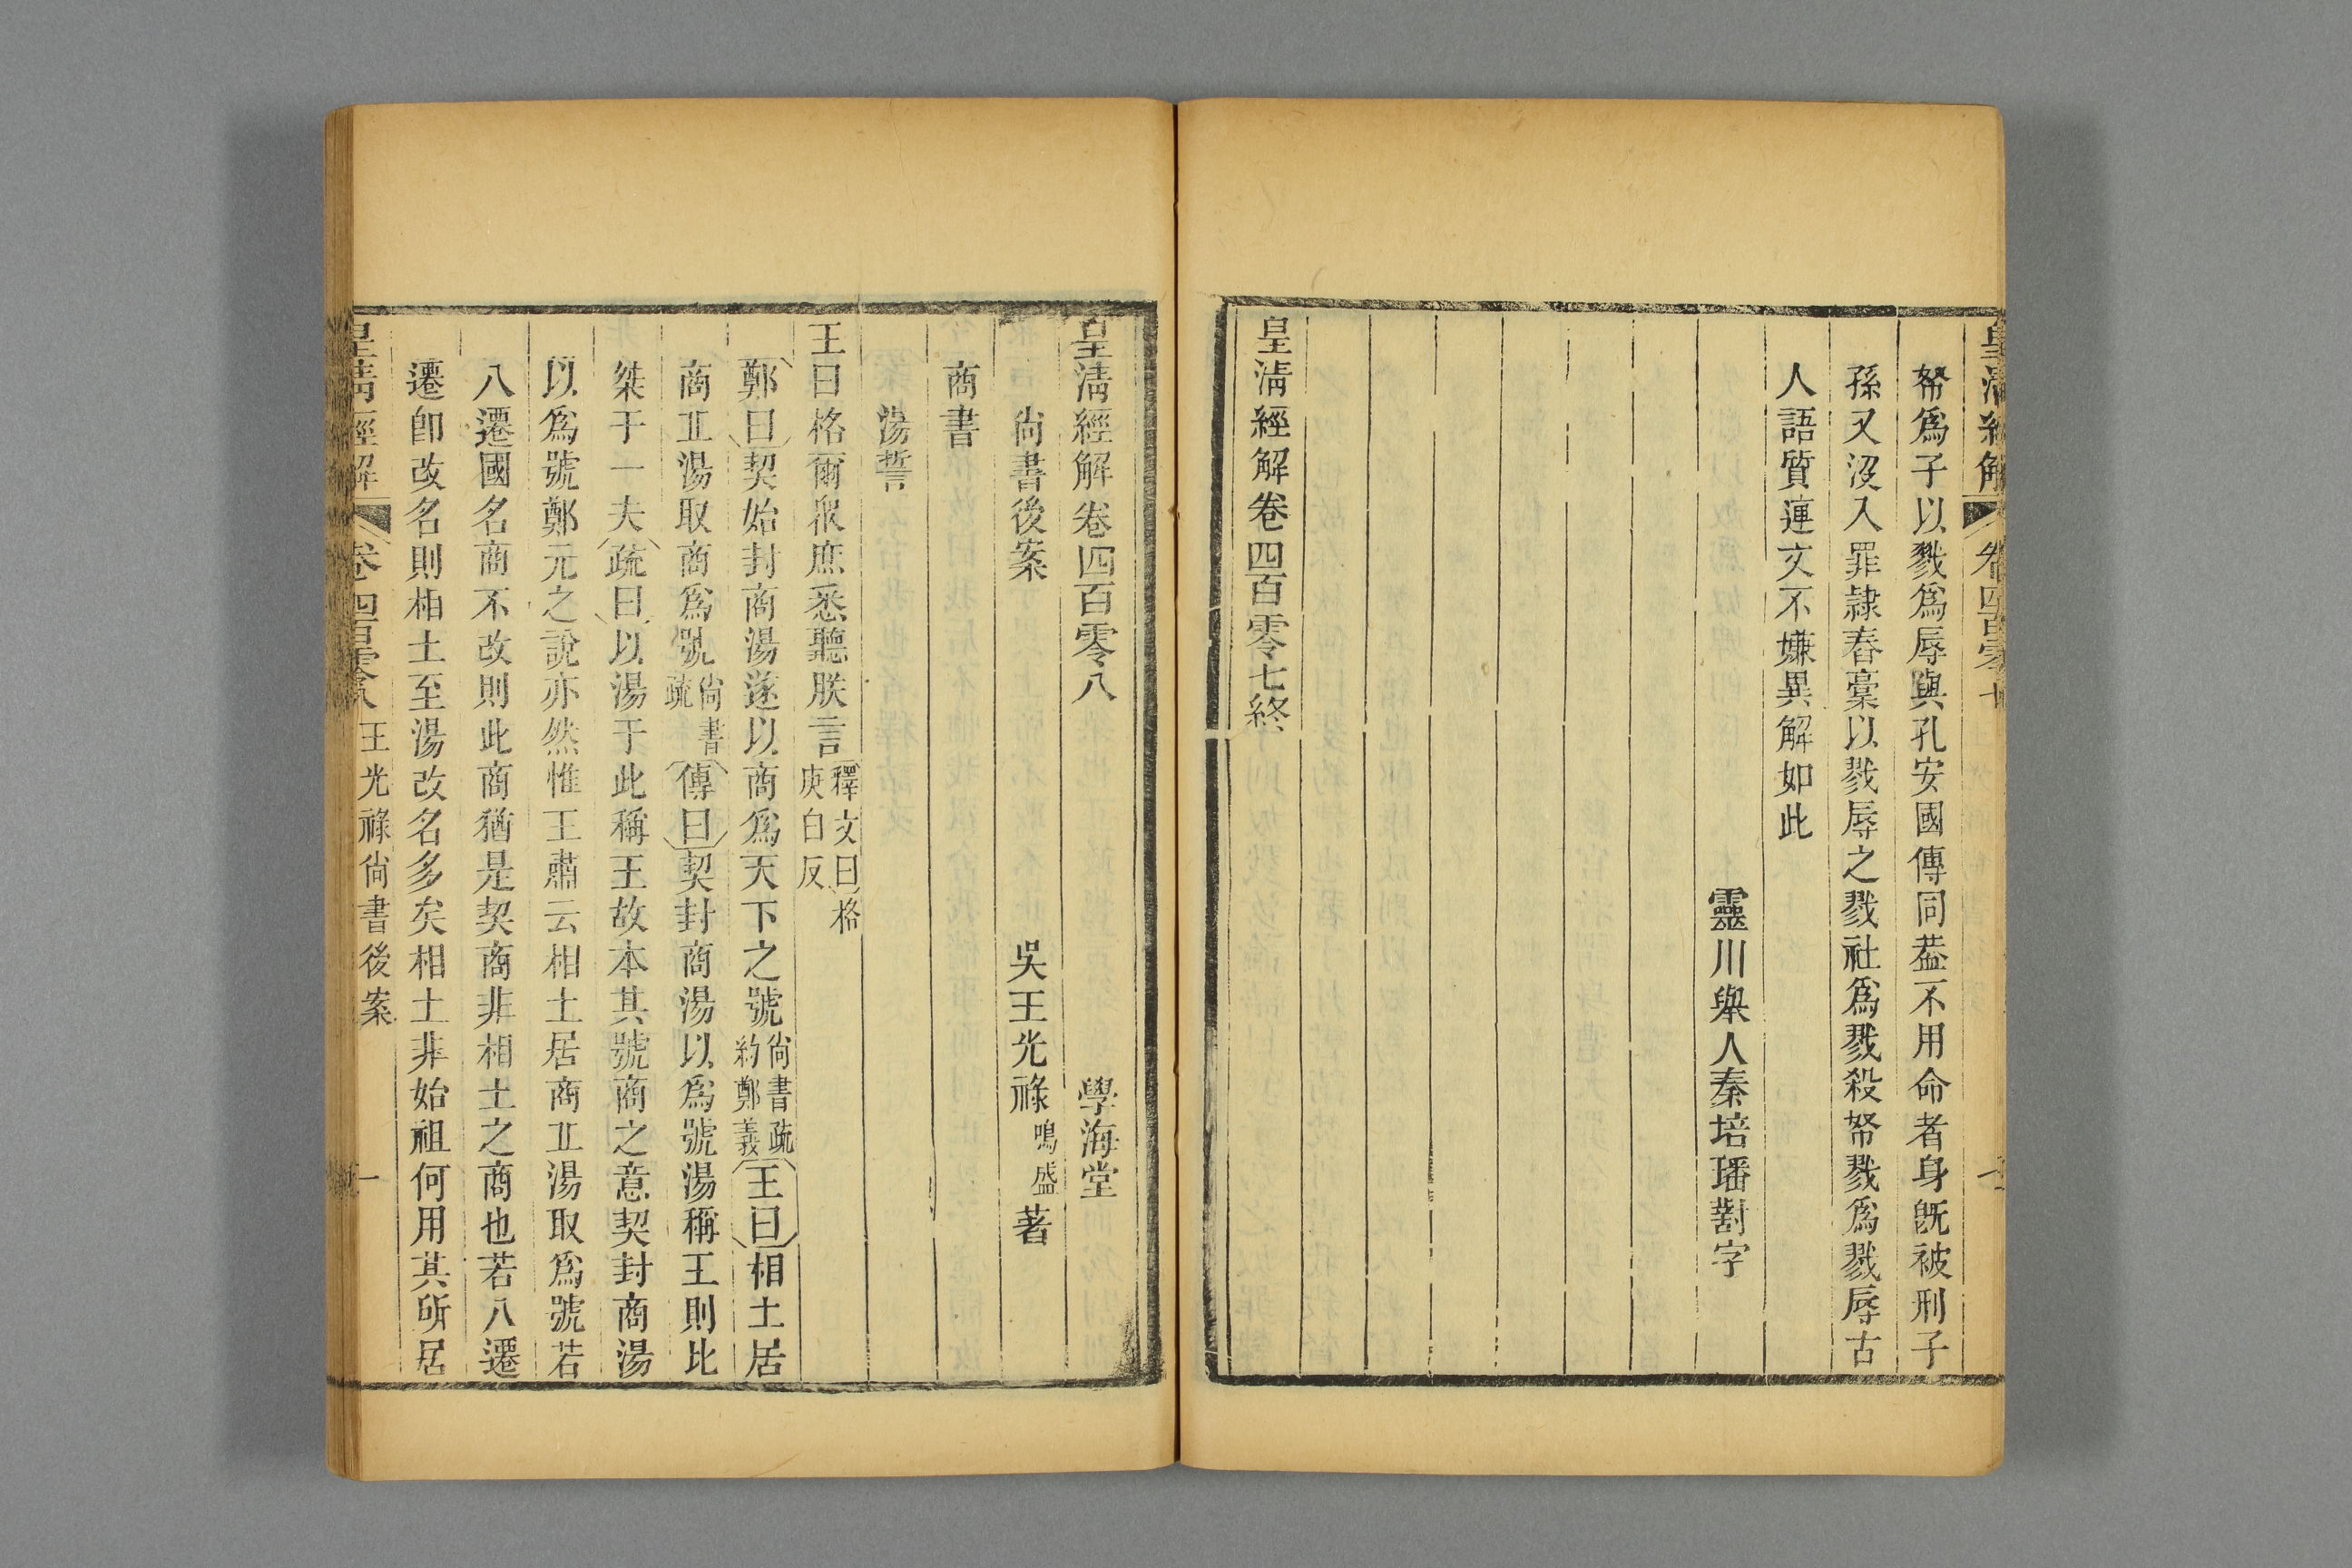 皇清經解 卷四百零七
帑爲子以戮爲辱與孔安國傳同葢不用命者身旣被刑子
孫又沒入罪隸舂槀以戮辱之戮社爲戮殺帑戮爲戮辱古
人語質連文不嫌異解如此
靈川舉人秦培璠對字
皇淸經解卷四百零七終
皇淸經解卷四百零八
學海堂
尙書後案
吳王光祿鳴盛著
商書
湯誓
王曰格爾衆庶悉聽朕言釋文曰格庚白反
鄭曰契始封商湯遂以商爲天下之號尙書疏約鄭義王曰相土居
商丠湯取商爲號尙書疏傳曰契封商湯以爲號湯稱王則比
桀于一夫疏曰以湯于此稱王故本其號商之意契封商湯
以爲號鄭元之說亦然惟王肅云相土居商丠湯取爲號若
八遷國名商不改則此商猶是契商非相土之商也若八遷
遷卽改名則相土至湯改名多矣相土非始祖何用其所居
皇清經解 卷四百零八 王光祿尙書後案 一